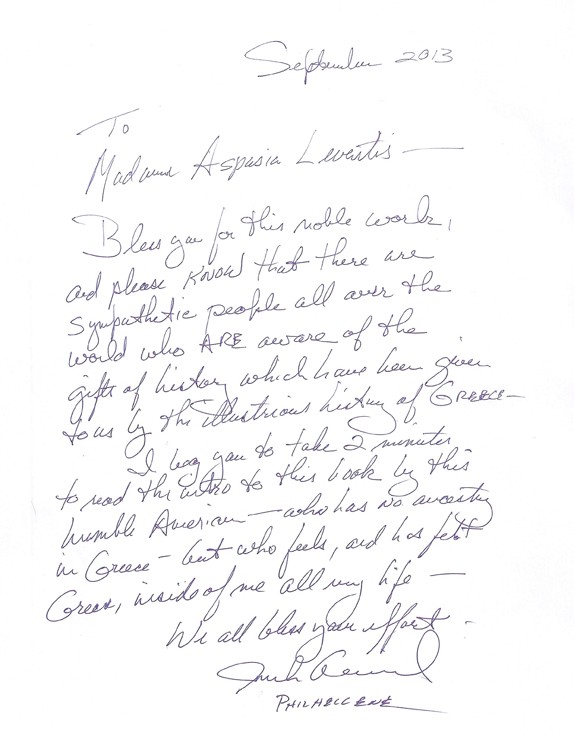 September 2013
To
Madame Aspasia Leventis —
Bless you for this noble work,
and please KNOW that there are
sympathetic people all over the
world who ARE aware of the
gifts of history which have been given
to us by the illustrious history of GREECE —
I beg you to take 2 minutes
to read the intro to this book by this
humble American — who has no ancestry
in Greece — but who feels, and has felt
Greek, inside of me all my life —
We all bless your effort -
PHILHELLENE